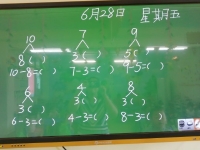 6月28日 星期五
10 7 9
8( ) 3( ) 5( )
10-8=( ) 7-3=( ) 9-5=( )
6 4 8
3( ) 3( ) 3( )
6-3=( ) 4-3=( ) 8-3=( )